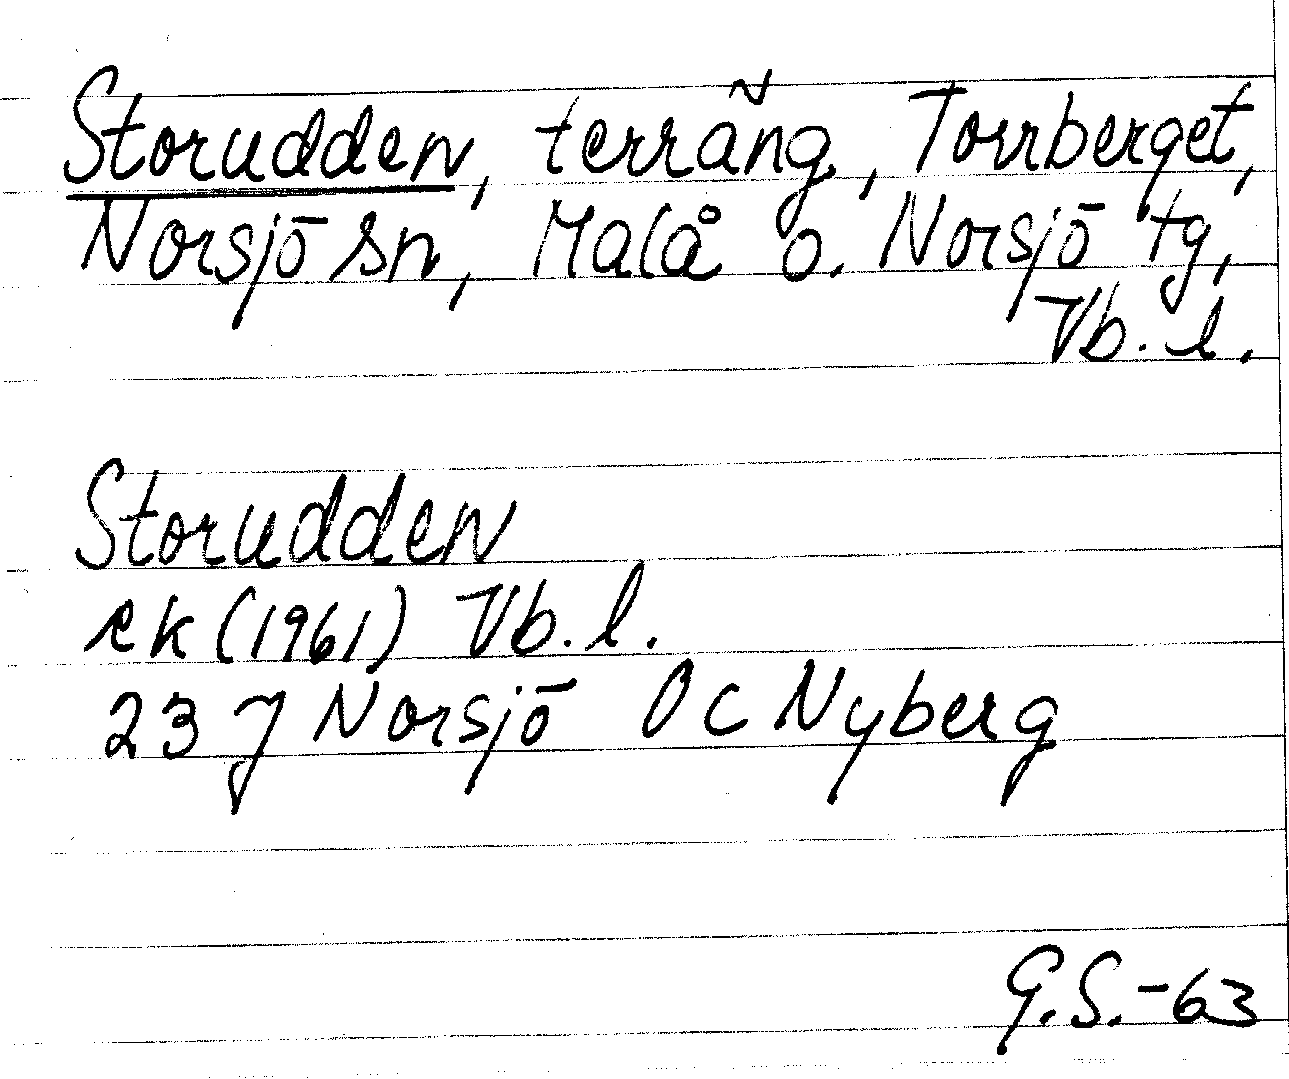 Storudden, terräng, Torrberget,
Norsjö sn, Malå o. Norsjö tg,
Vb. l.
Storudden
ek (1961) Vb. l.
23 J Norsjö Oc Nyberg
G.S.-63